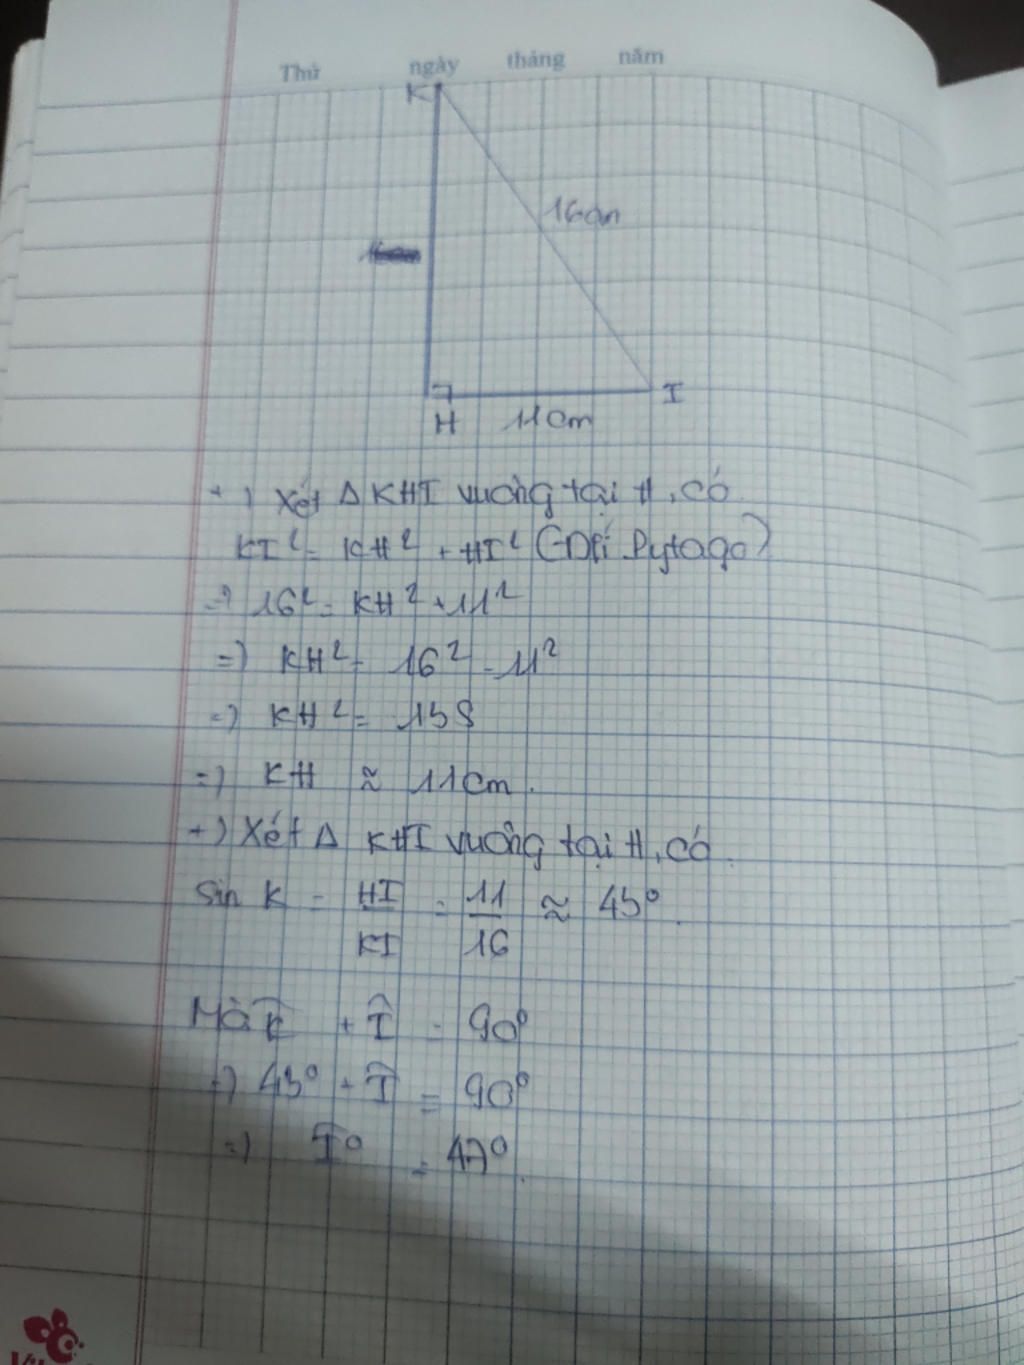 Thứ ngày tháng năm
K
16cm
H 11cm I
+) Xét Δ KHI vuông tại H, có
KI² = KH² + HI² (Đlí Pytago)
=) 16² = KH² + 11²
=) KH² = 16² - 11²
=) KH² = 135
=) KH ≈ 11cm.
+) Xét Δ KHI vuông tại H, có
Sin K = HI/KI = 11/16 ≈ 43°
Mà K̂ + Î = 90°
=) 43° + Î = 90°
=) Î° = 47°.